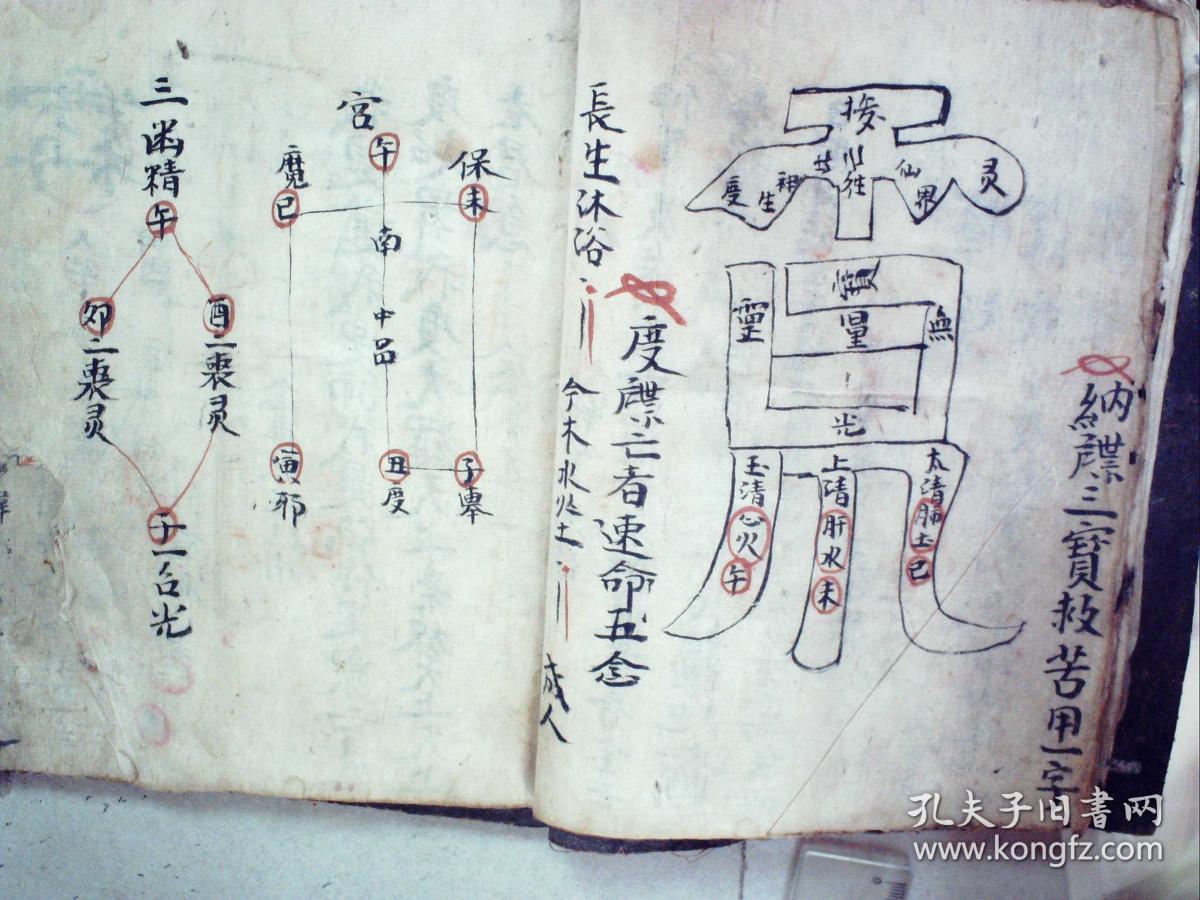 納牒三寶救苦用一字
灵
仙界
度生
寶
無量光
靈
太清肺土巳
上清肝水未
玉清心火午
度牒亡者速命五念
長生沐浴
今木水火土
成人
保未
子
宮午
南
中品
丑度
魔巳
寅邪
三幽精午
酉二喪灵
卯二喪灵
子一台光
孔夫子旧书网
www.kongfz.com